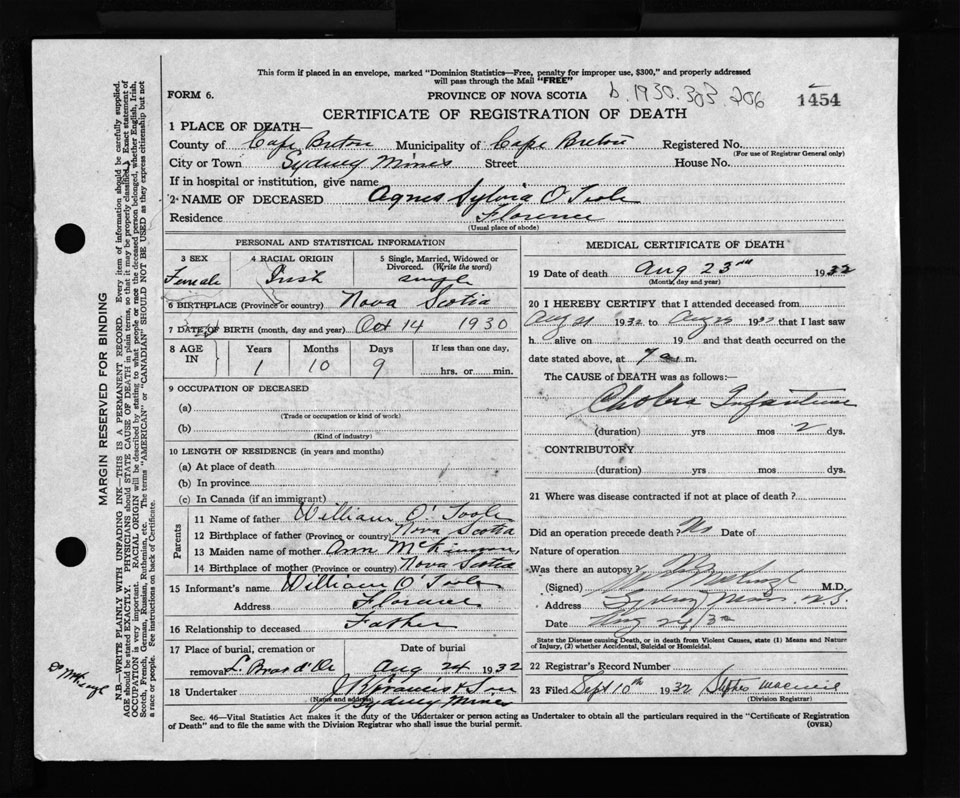 This form if placed in an envelope, marked "Dominion Statistics—Free, penalty for improper use, $300," and properly addressed
will pass through the Mail "FREE"
FORM 6.
PROVINCE OF NOVA SCOTIA b.1930.303.206
1454
CERTIFICATE OF REGISTRATION OF DEATH
1 PLACE OF DEATH—
County of Cape Breton Municipality of Cape Breton Registered No.
(For use of Registrar General only)
City or Town Sydney Mines Street House No.
If in hospital or institution, give name
2 NAME OF DECEASED Agnes Sylvia O'Toole
Residence Florence
(Usual place of abode)
PERSONAL AND STATISTICAL INFORMATION
3 SEX 4 RACIAL ORIGIN 5 Single, Married, Widowed or
Divorced. (Write the word)
Female Irish single
6 BIRTHPLACE (Province or country) Nova Scotia
7 DATE OF BIRTH (month, day and year) Oct 14 1930
8 AGE IN Years Months Days If less than one day,
1 10 9 hrs. or min.
9 OCCUPATION OF DECEASED
(a)
(Trade or occupation or kind of work)
(b)
(Kind of industry)
10 LENGTH OF RESIDENCE (in years and months)
(a) At place of death
(b) In province
(c) In Canada (if an immigrant)
Parents
11 Name of father William O'Toole
12 Birthplace of father (Province or country) Nova Scotia
13 Maiden name of mother Ann McKinnon
14 Birthplace of mother (Province or country) Nova Scotia
15 Informant's name William O'Toole
Address Florence
16 Relationship to deceased Father
17 Place of burial, cremation or Date of burial
removal L. Bras d'Or Aug 24 1932
18 Undertaker J. Francis & Son
(Name and address) Sydney Mines
MEDICAL CERTIFICATE OF DEATH
19 Date of death Aug 23rd 1932
(Month, day and year)
20 I HEREBY CERTIFY that I attended deceased from
Aug 21 1932 to Aug 1932 that I last saw
h alive on 19 and that death occurred on the
date stated above, at 7 a m.
The CAUSE of DEATH was as follows:—
Cholera Infantum
(duration) yrs mos 2 dys.
CONTRIBUTORY
(duration) yrs mos dys.
21 Where was disease contracted if not at place of death?
Did an operation precede death? No Date of
Nature of operation
Was there an autopsy?
(Signed) M.D.
Address Sydney Mines N.S.
Date Aug
State the Disease causing Death, or in death from Violent Causes, state (1) Means and Nature
of Injury, (2) whether Accidental, Suicidal or Homicidal.
22 Registrar's Record Number
23 Filed Sept 10th 1932 Stephen MacNeil
(Division Registrar)
Sec. 46—Vital Statistics Act makes it the duty of the Undertaker or person acting as Undertaker to obtain all the particulars required in the "Certificate of Registration
of Death" and to file the same with the Division Registrar who shall issue the burial permit.
(OVER)
MARGIN RESERVED FOR BINDING
N.B.—WRITE PLAINLY WITH UNFADING INK—THIS IS A PERMANENT RECORD. Every item of information should be carefully supplied.
AGE should be stated EXACTLY. PHYSICIANS should STATE CAUSE OF DEATH in plain terms, so that it may be properly classified. Exact statement of
OCCUPATION is very important. RACIAL ORIGIN will be described by stating to what people or race the deceased person belonged, whether English, Irish,
Scotch, French, German, Russian, Ruthenian, etc. The terms "AMERICAN" or "CANADIAN" SHOULD NOT BE USED as they express citizenship but not
a race or people. See instructions on back of Certificate.